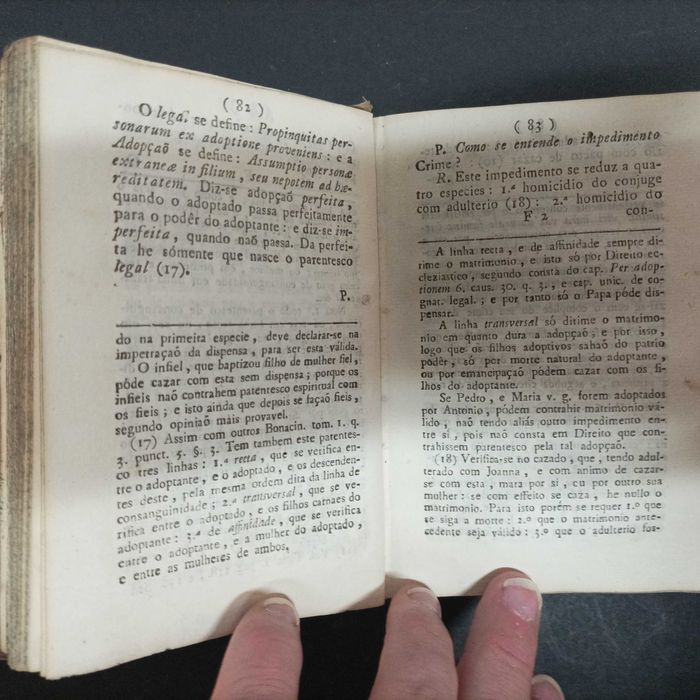 ( 82 )
O legal se define: Propinquitas per-
sonarum ex adoptione proveniens: e a
Adopçaõ se define: Assumptio personæ
extraneæ in filium, seu nepotem ad hæ-
reditatem. Diz-se adopçaõ perfeita,
quando o adoptado passa perfeitamente
para o podêr do adoptante: e diz-se im-
perfeita, quando naõ passa. Da perfei-
ta he sómente que nasce o parentesco
legal (17).
P.
do na primeira especie, deve declarar-se na
impetraçaõ da dispensa, para ser esta válida.
O infiel, que baptizou filho de mulher fiel,
póde cazar com esta sem dispensa; porque os
infieis naõ contrahem parentesco espiritual com
os fieis; e isto ainda que depois se façaõ fieis,
segundo opiniaõ mais provavel.
(17) Assim com outros Bonacin. tom. 1. q.
3. punct. 5. §. 3. Tem tambem este parentes-
co tres linhas: 1.ª recta, que se verifica en-
tre o adoptante, e o adoptado, e os descenden-
tes deste, pela mesma ordem dita da linha de
consanguinidade; 2.ª transversal, que se ve-
rifica entre o adoptado, e os filhos carnaes do
adoptante: 3.ª de affinidade, que se verifica
entre o adoptante, e a mulher do adoptado,
e entre as mulheres de ambos.
( 83 )
P. Como se entende o impedimento
Crime?
R. Este impedimento se reduz a qua-
tro especies: 1.ª homicidio do conjuge
com adulterio (18): 2.ª homicidio do
F 2 con-
A linha recta, e de affinidade sempre di-
rime o matrimonio, e isto só por Direito ec-
cleziastico, segundo consta do cap. Per adop-
tionem 6. caus. 30. q. 3., e cap. unic. de co-
gnat. legal.; e por tanto só o Papa póde dis-
pensar.
A linha transversal só ditime o matrimo-
nio em quanto dura a adopçaõ; e por isso,
logo que os filhos adoptivos sahaõ do patrio
podêr, só por morte natural do adoptante,
ou por emancipaçaõ pódem cazar com os fi-
lhos do adoptante.
Se Pedro, e Maria v. g. forem adoptados
por Antonio, pódem contrahir matrimonio vá-
lido, naõ tendo aliás outro impedimento en-
tre si, pois naõ consta em Direito que con-
trahissem parentesco pela tal adopçaõ.
(18) Verifica-se no cazado, que, tendo adul-
terado com Joanna, e com animo de cazar-
se com esta, mara por si, cu por outro sua
mulher: se com effeito se caza, he nullo o
matrimonio. Para isto porém se requer 1.º que
se siga a morte: 2.º que o matrimonio ante-
cedente seja válido: 3.º que o adulterio fos-